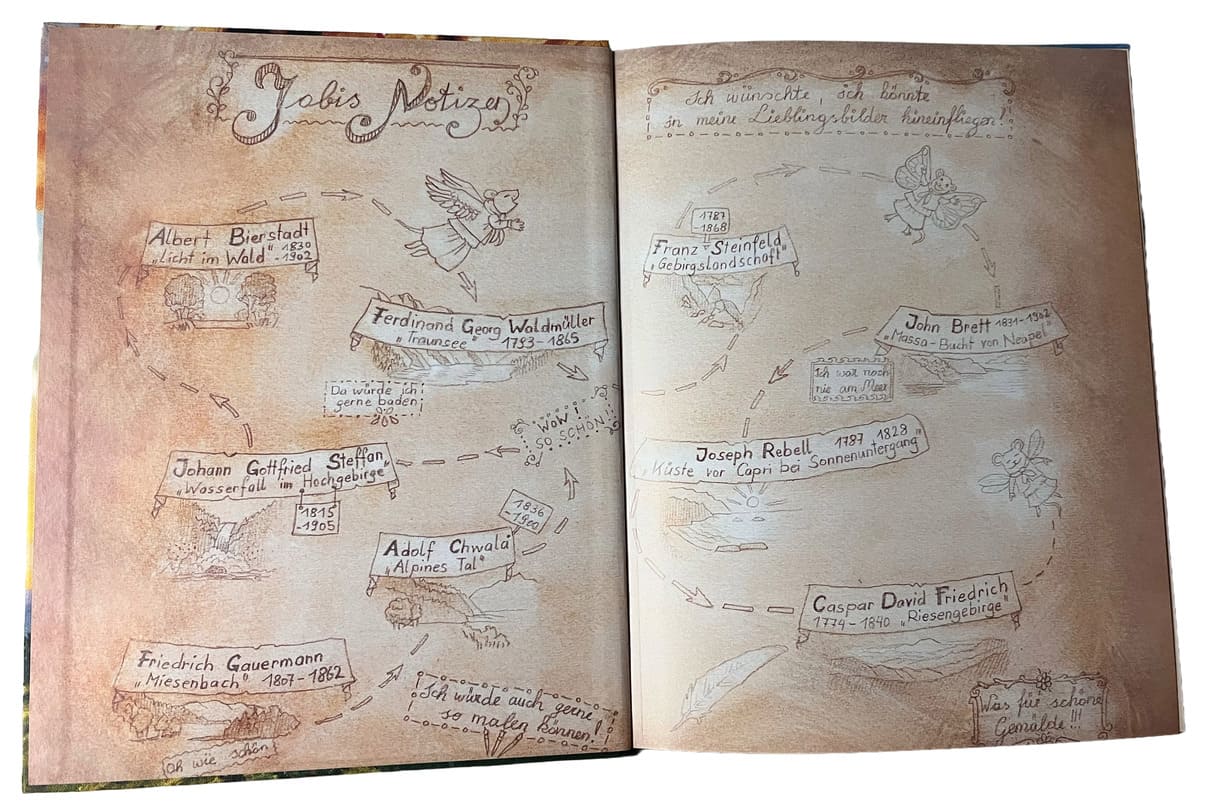 Jobis Notizen
Albert Bierstadt
"Licht im Wald" 1830
-1902
Ferdinand Georg Waldmüller
"Traunsee" 1793-1865
Da würde ich
gerne baden
WOW!
SO SCHÖN!
Johann Gottfried Steffan
"Wasserfall im Hochgebirge"
1815
-1905
1836
-1900
Adolf Chwala
"Alpines Tal"
Friedrich Gauermann
"Miesenbach" 1807-1862
Oh wie schön
Ich würde auch gerne
so malen können!
Ich wünschte, ich könnte
in meine Lieblingsbilder hineinfliegen!
1787
-1868
Franz Steinfeld
"Gebirgslandschaft"
John Brett 1831-1902
"Massa-Bucht von Neapel"
Ich war noch
nie am Meer
Joseph Rebell 1787 1828
"Küste vor Capri bei Sonnenuntergang"
Caspar David Friedrich
1774-1840 "Riesengebirge"
Was für schöne
Gemälde!!!